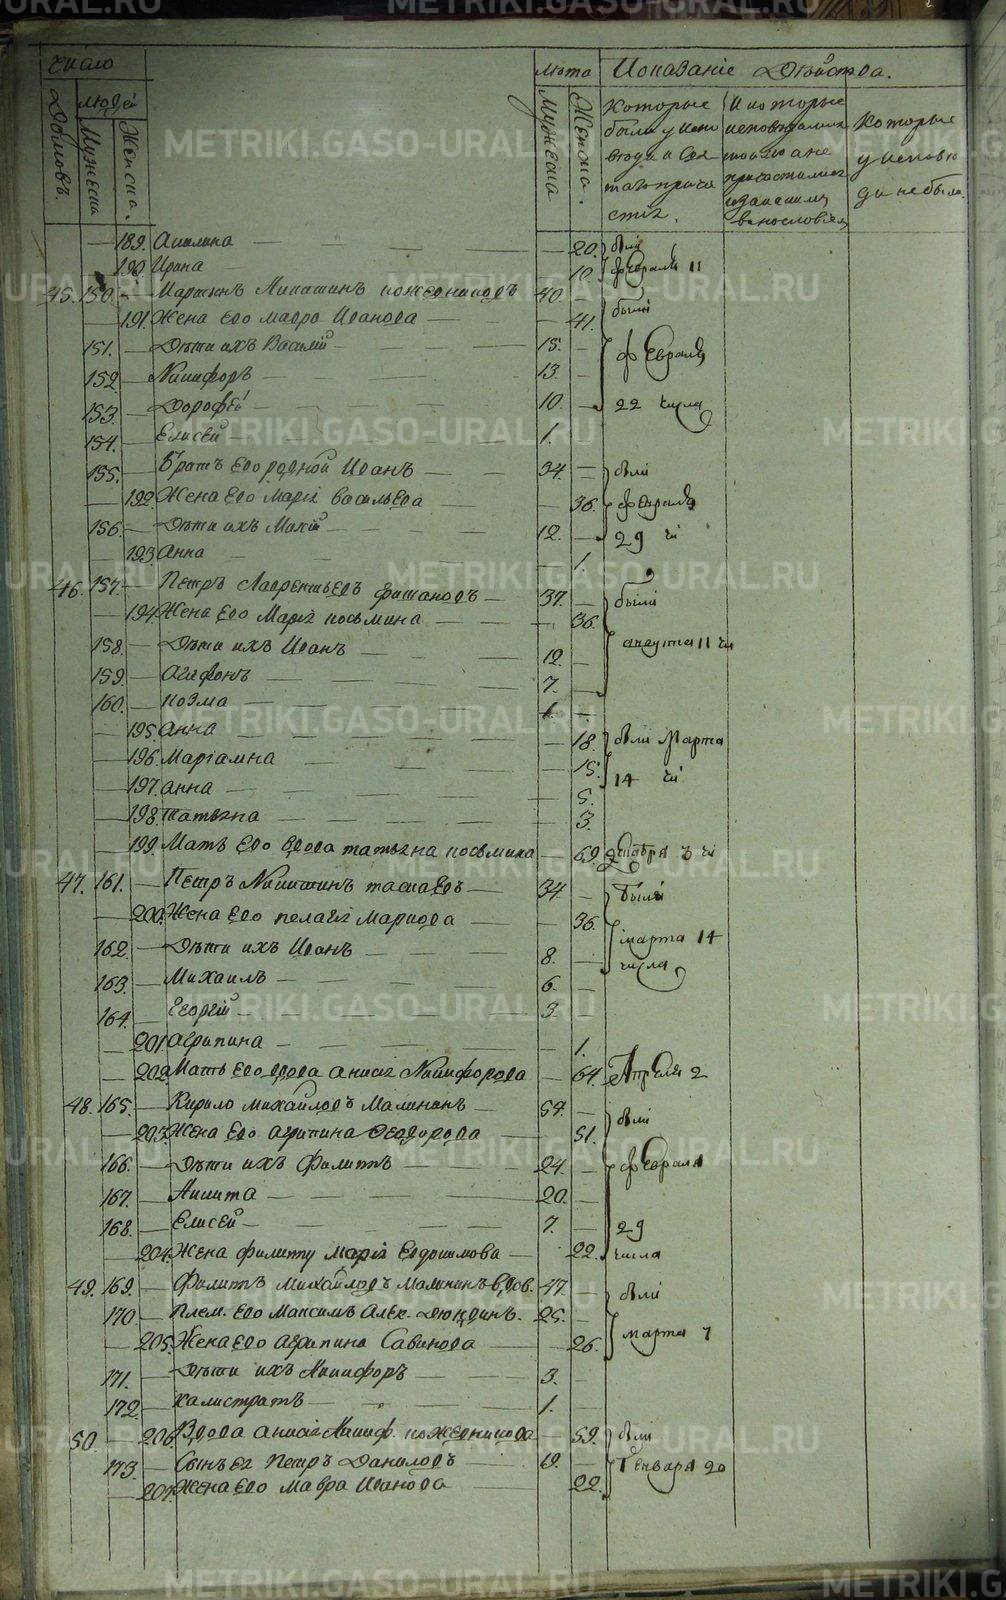 METRIKI.GASO-URAL.RU
Число
Домовъ. людей Мужеска Женска.
лѣта Мужеска Женска.
Показаніе Дѣйства.
Которые были у исповѣди и Святаго причастія.
Которые исповѣдались
Которые у исповѣди не были.
189. Акилина 20. были
190. Ирина 10. февраля 11
45. 150. Мартинъ Никитинъ кожевниковъ 40
191. Жена его мавра Иванова 41. были
151. Дѣти ихъ Василій 15. февраля
152. Никифоръ 13.
153. Дорофей 10. 22 числа
154. Елисей 1.
155. Братъ его родной Иванъ 34. были
192. Жена его Марія васильева 36. февраля
156. Дѣти ихъ 12. 29 чи
193. Анна 1.
46. 157. Петръ Лаврентьевъ 37. были
194. Жена его Марія козьмина 36.
158. Дѣти ихъ Иванъ 12. августа 11 чи
159. Агафонъ 7.
160. козма 1.
195. Анна 18. были Марта
196. Маріамна 15. 14 чи
197. анна 5.
198. татьяна 3.
199. Мать его вдова татьяна козьмина 69.
47. 161. Петръ Никитинъ 34. были
200. Жена его пелагія Маркова 36. марта 14
162. Дѣти ихъ Иванъ 8. числа
163. Михаилъ 6.
164. Георгій 3.
201. агрипина 1.
202. Мать его вдова анисія Никифорова 64. Апреля 2
48. 165. Кирило михайловъ Малининъ 54. были
203. Жена его агрипина Ѳеодорова 51.
166. Дѣти ихъ Филиппъ 24. февраля
167. Никита 20.
168. Елисей 7. 29
204. Жена филиппу марія Евдокимова 22. числа
49. 169. Филиппъ михайловъ Малининъ вдов. 47. были
170. Плем. его Максимъ Алек. 25.
205. Жена его агрипина Савинова 26. марта 7
171. Дѣти ихъ Никифоръ 3.
172. калистратъ 1.
50. 206. Вдова анисія Никиф. кожевникова 59. были
173. Сынъ ея Петръ Даниловъ 19. Генваря 20
207. Жена его Мавра Иванова 22.